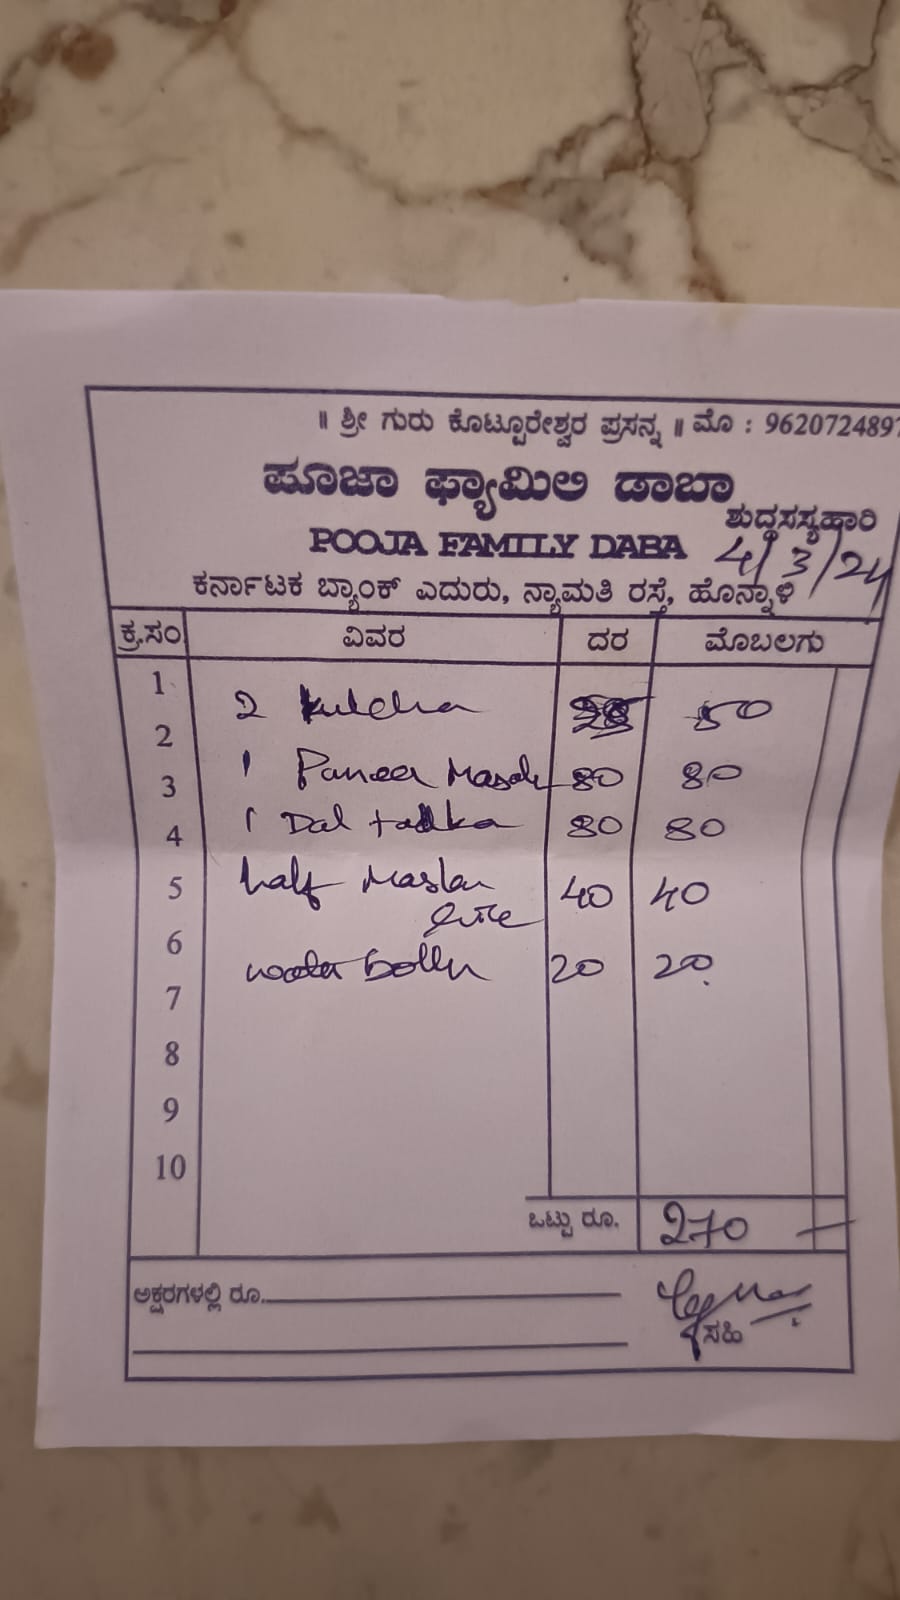 ॥ ಶ್ರೀ ಗುರು ಕೊಟ್ಟೂರೇಶ್ವರ ಪ್ರಸನ್ನ ॥ ಮೊ : 962072489
ಪೂಜಾ ಫ್ಯಾಮಿಲಿ ಡಾಬಾ
ಶುದ್ಧಸಸ್ಯಹಾರಿ
POOJA FAMILY DABA 4/3/24
ಕರ್ನಾಟಕ ಬ್ಯಾಂಕ್ ಎದುರು, ನ್ಯಾಮತಿ ರಸ್ತೆ, ಹೊನ್ನಾಳಿ
ಕ್ರ.ಸಂ ವಿವರ ದರ ಮೊಬಲಗು
1 2 kulcha 50
2
3 1 Paneer Masala 80 80
4 1 Dal tadka 80 80
5 half 40 40
6 water bottle 20 20
7
8
9
10
ಒಟ್ಟು ರೂ. 270
ಅಕ್ಷರಗಳಲ್ಲಿ ರೂ.
ಸಹಿ